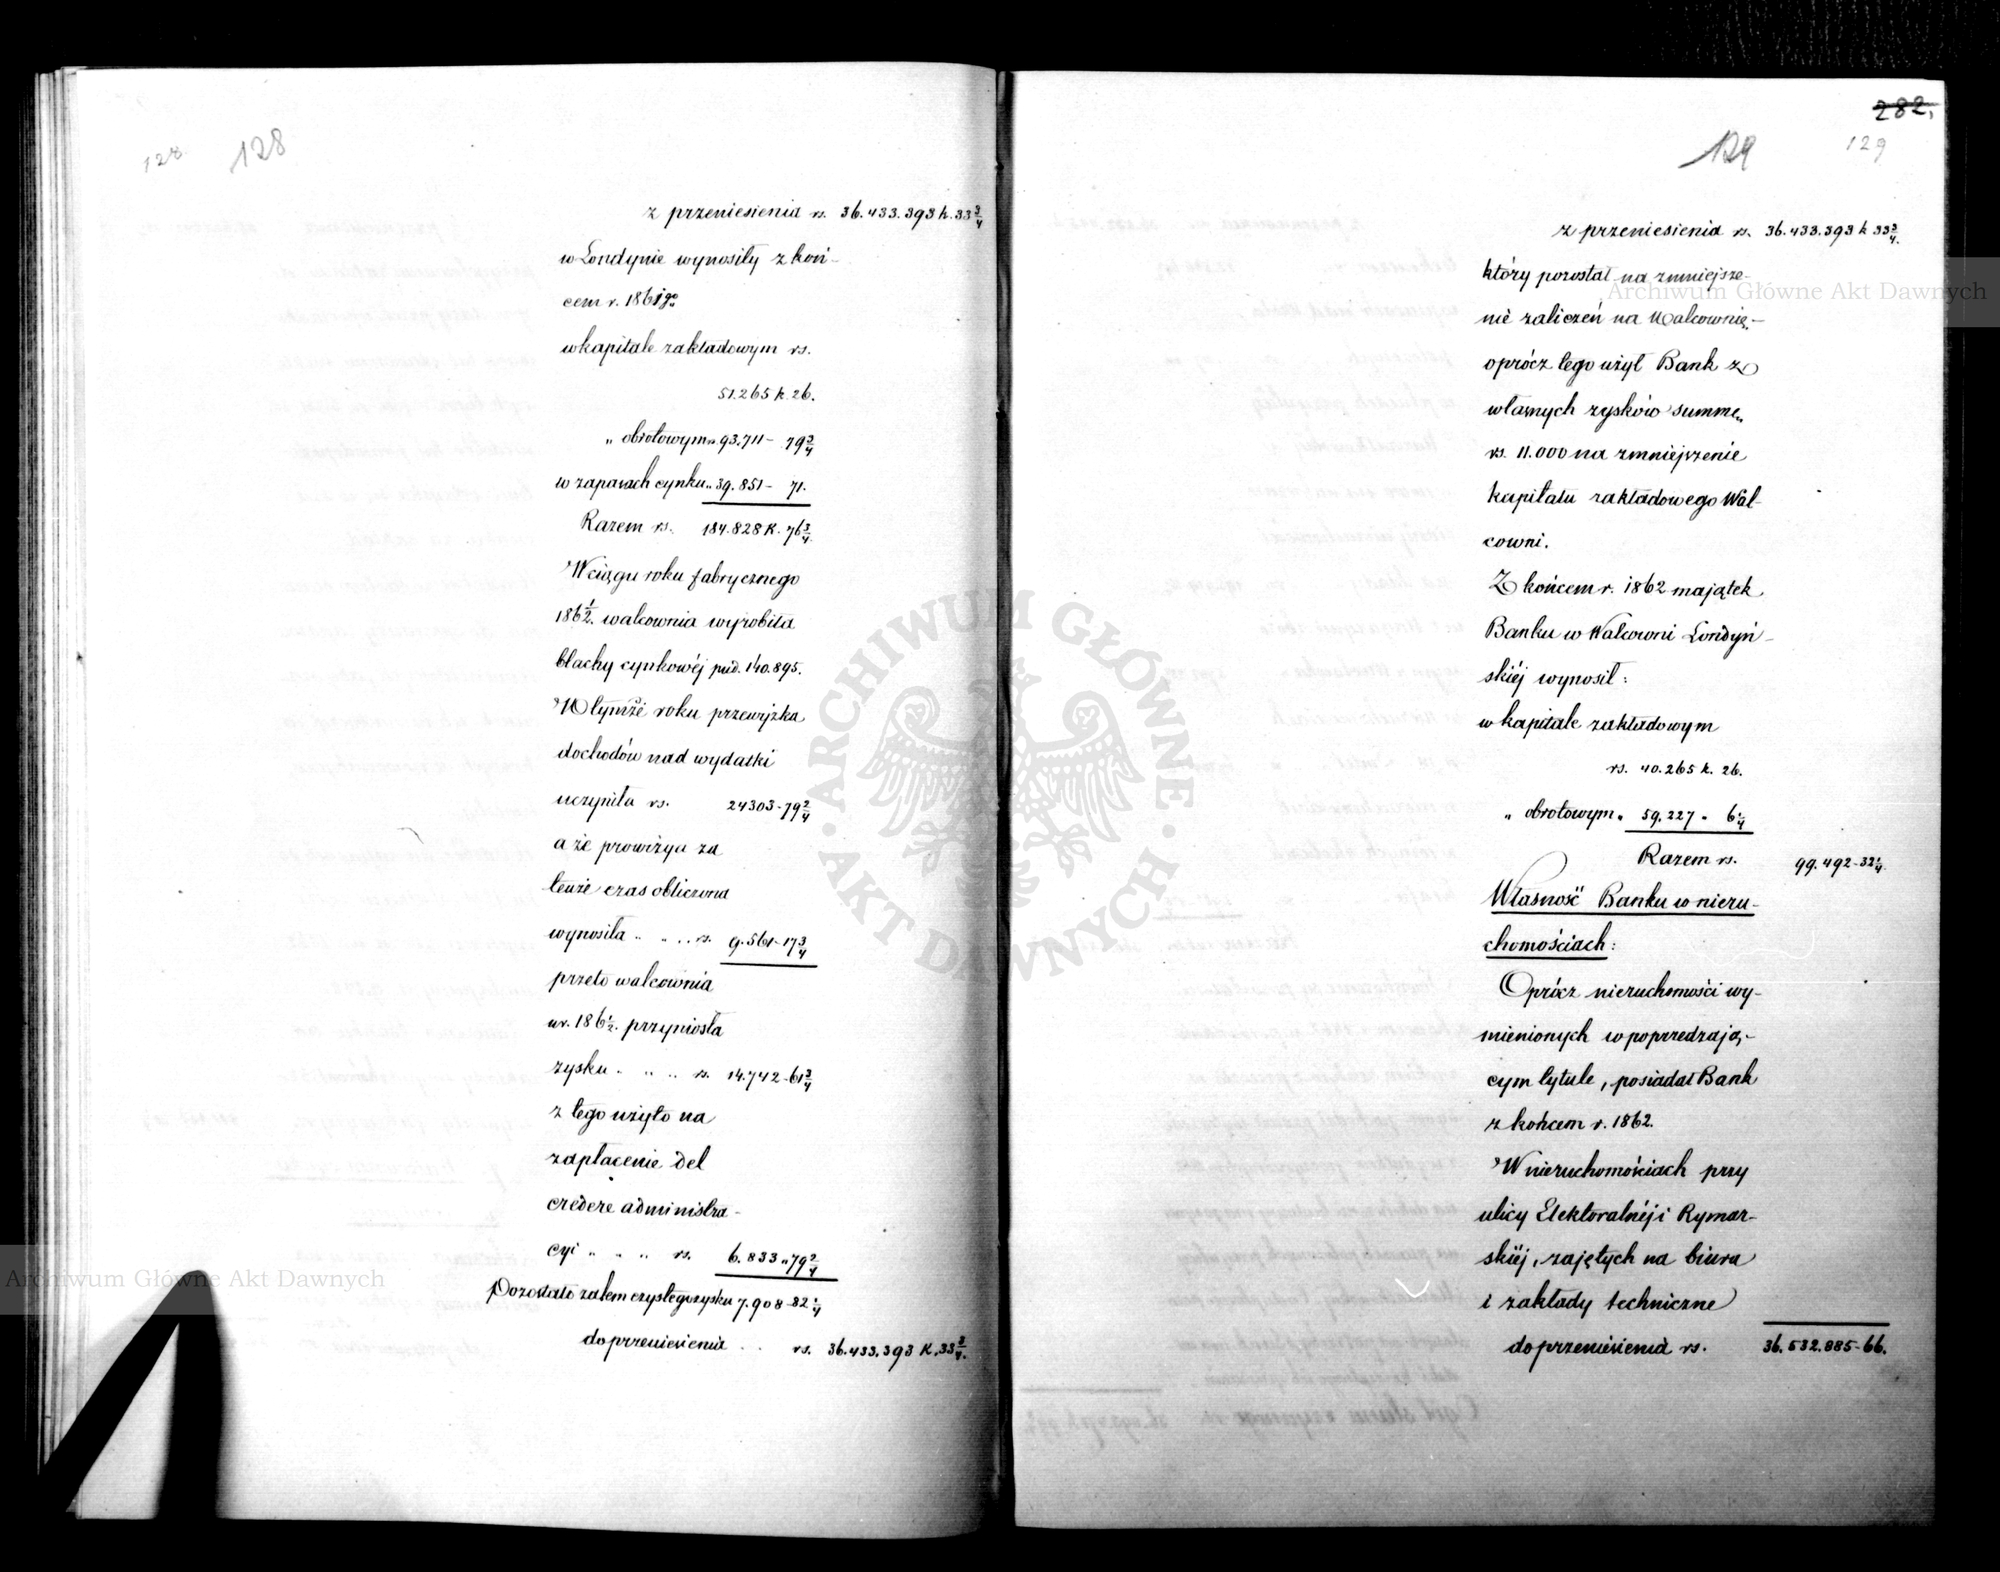 128. 128
z przeniesienia rs. 36.433.393 k. 33 3/4
w Londynie wynosiły z koń-
cem r. 1861go
w kapitale zakładowym rs.
51.265 k. 26.
„ obrotowym „ 93.711 - 79 3/4
w zapasach cynku „ 39.851 - 71.
Razem rs. 184.828 k. 76 3/4
W ciągu roku fabrycznego
186 1/2. walcownia wyrobiła
blachy cynkowéj pud. 140.895.
W tymże roku przewyżka
dochodów nad wydatki
uczyniła rs. 24303 - 79 2/4
a że prowizya za
tenże czas obliczona
wynosiła „ „ .. rs. 9.561 - 17 3/4
przeto walcownia
w r. 186 1/2. przyniosła
zysku . „ .. rs. 14.742 - 61 3/4
z tego użyto na
zapłacenie del
credere administra-
cyi „ „ „ rs. 6.833 „ 79 2/4
Pozostało zatem czystego zysku 7.908 - 82 1/4
do przeniesienia . . rs. 36.433.393 K. 33 3/4.
282.
129 129
z przeniesienia rs. 36.433.393 k 33 3/4.
który pozostał na zmniejsze-
nie zaliczeń na Walcownię. –
oprócz tego użył Bank z
własnych zysków summę
rs. 11.000 na zmniejszenie
kapitału zakładowego Wal-
cowni.
Z końcem r. 1862 majątek
Banku w Walcowni Londyń-
skiéj wynosił:
w kapitale zakładowym
rs. 40.265 k. 26.
„ obrotowym „ 59.227 „ 6 1/4
Razem rs. 99.492 - 32 1/4.
Własność Banku w nieru-
chomościach:
Oprócz nieruchomości wy-
mienionych w poprzedzają-
cym tytule, posiadał Bank
z końcem r. 1862.
W nieruchomościach przy
ulicy Elektoralnéj i Rymar-
skiéj, zajętych na biura
i zakłady techniczne
do przeniesienia rs. 36.532.885 - 66.
ARCHIWUM GŁÓWNE · AKT DAWNYCH ·
Archiwum Główne Akt Dawnych
Archiwum Główne Akt Dawnych